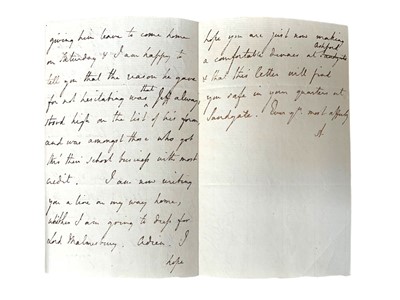 giving him leave to come home
on Saturday & I am happy to
tell you that the reason he gave
for not hesitating was that Jeff always
stood high on the list of his form,
and was amongst those who got
thro' their school business with most
credit. I am now writing
you a line on my way home,
whither I am going to dress for
Lord Malmesbury. Adieu. I
hope
hope you are just now making
a comfortable dinner at Ashford
& that this letter will find
you safe in your quarters at
Sandgate. Ever yrs. most affectly
A